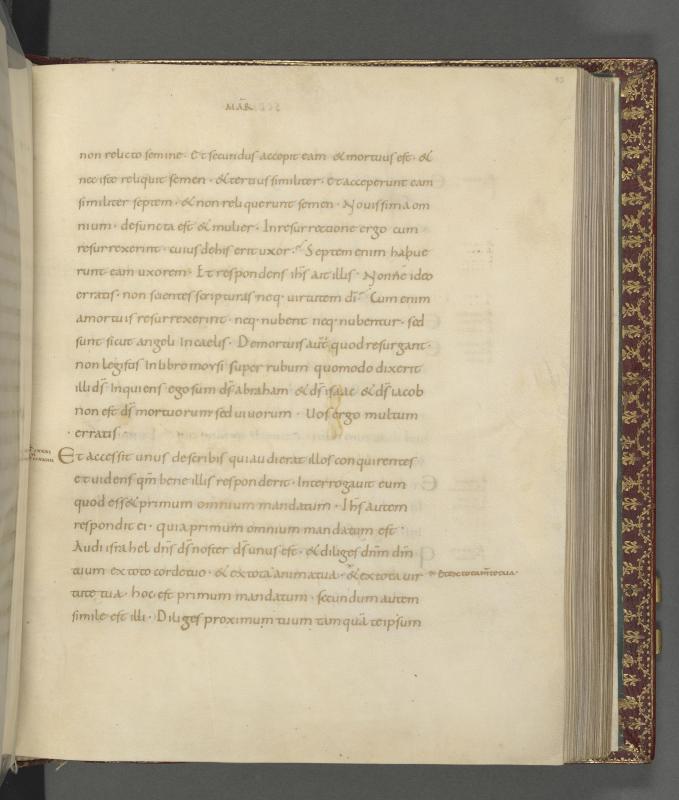 MAR̄
non relicto semine · Et secundus accepit eam & mortuus est · &
nec iste reliquit semen · & tertius similiter · Et acceperunt eam
similiter septem · & non reliquerunt semen · Novissima om
nium · defuncta est & mulier · In resurrectione ergo cum
resurrexerint · cuius de his erit uxor · Septem enim habue
runt eam uxorem · Et respondens ih̄s ait illis · Nonne ideo
erratis · non scientes scripturas neq· virtutem dī · Cum enim
a mortuis resurrexerint · neq· nubent neq· nubentur · sed
sunt sicut angeli in caelis · De mortuis aut̄ quod resurgant ·
non legistis in libro moysi super rubum quomodo dixerit
illi d̄s inquiens ego sum d̄s abraham & d̄s isaac & d̄s iacob
non est d̄s mortuorum sed vivorum · Uos ergo multum
erratis
Et accessit unus de scribis qui audierat illos conquirentes
et videns qm̄ bene illis responderit · Interrogavit eum
quod ess& primum omnium mandatum · Ih̄s autem
respondit ei · quia primum omnium mandatum est
Audi israhel dn̄s d̄s noster d̄s unus est · & diliges dn̄m dm̄
tuum ex toto corde tuo · & ex tota anima tua · & ex tota vir
& ex tota mente tua ·
tute tua · hoc est primum mandatum · secundum autem
simile est illi · Diliges proximum tuum tamquā te ipsum